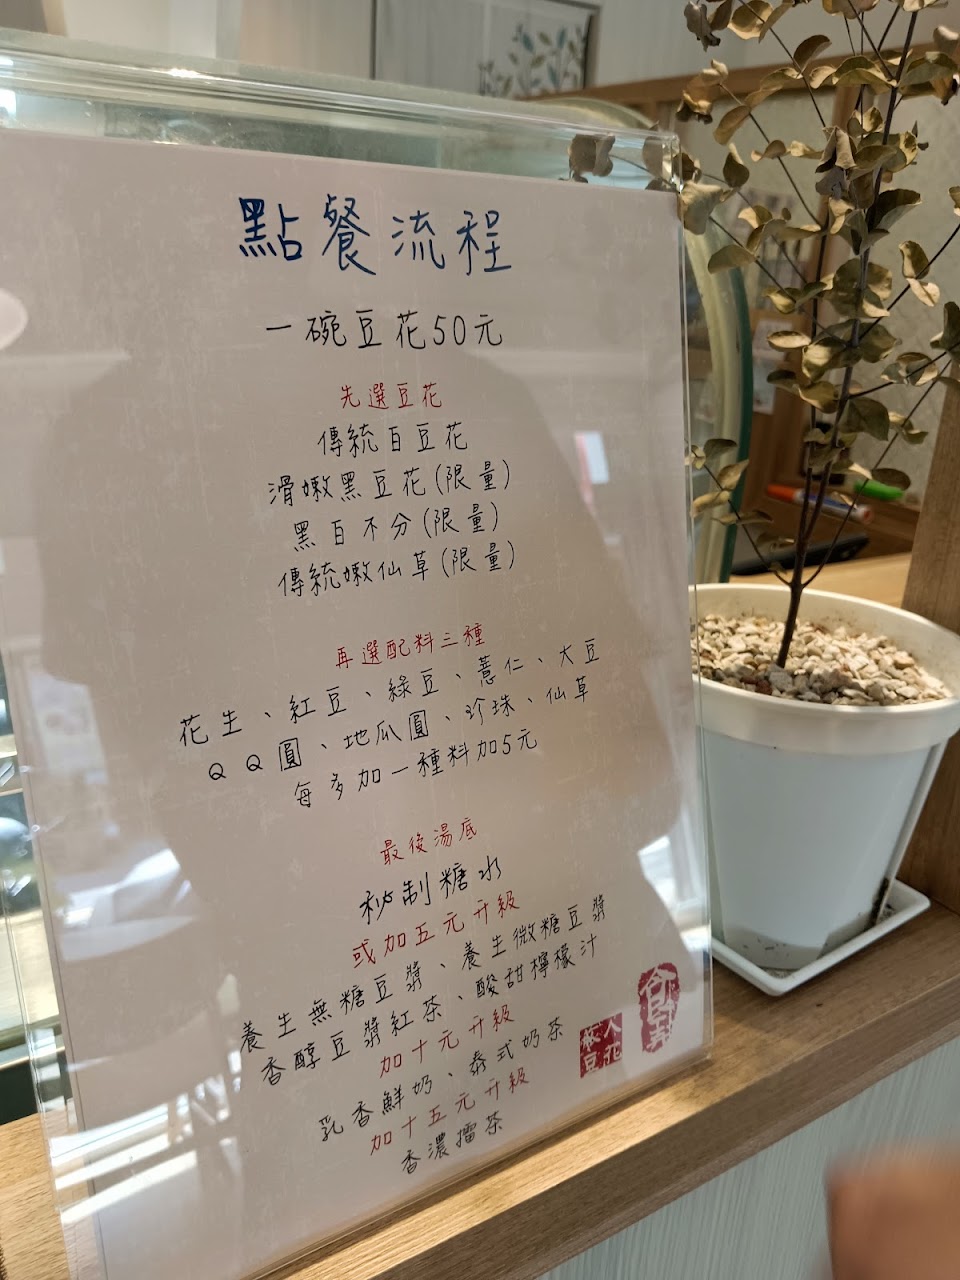 點餐流程
一碗豆花50元
先選豆花
傳統白豆花
滑嫩黑豆花(限量)
黑白不分(限量)
傳統嫩仙草(限量)
再選配料三種
花生、紅豆、綠豆、薏仁、大豆
QQ圓、地瓜圓、珍珠、仙草
每多加一種料加5元
最後湯底
秒制糖水
或加五元升級
養生無糖豆漿、養生微糖豆漿
香醇豆漿紅茶、酸甜檸檬汁
加十元升級
乳香鮮奶、泰式奶茶
加十五元升級
香濃擂茶